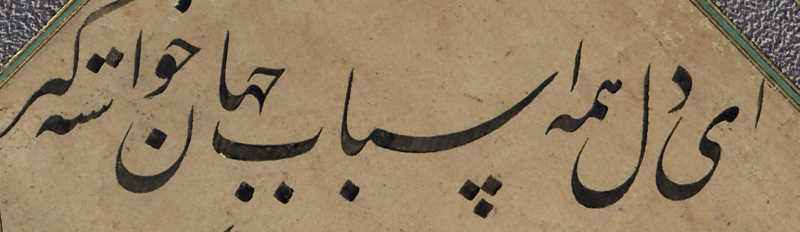 ای دل همه اسباب جهان خواسته گیر